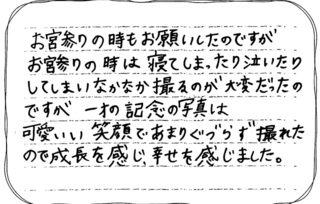 お宮参りの時もお願いしたのですが
お宮参りの時は寝てしまったり泣いたり
してしまいなかなか撮るのが大変だったの
ですが 一才の記念の写真は
可愛いい笑顔であまりぐづらず撮れた
ので成長を感じ、幸せを感じました。